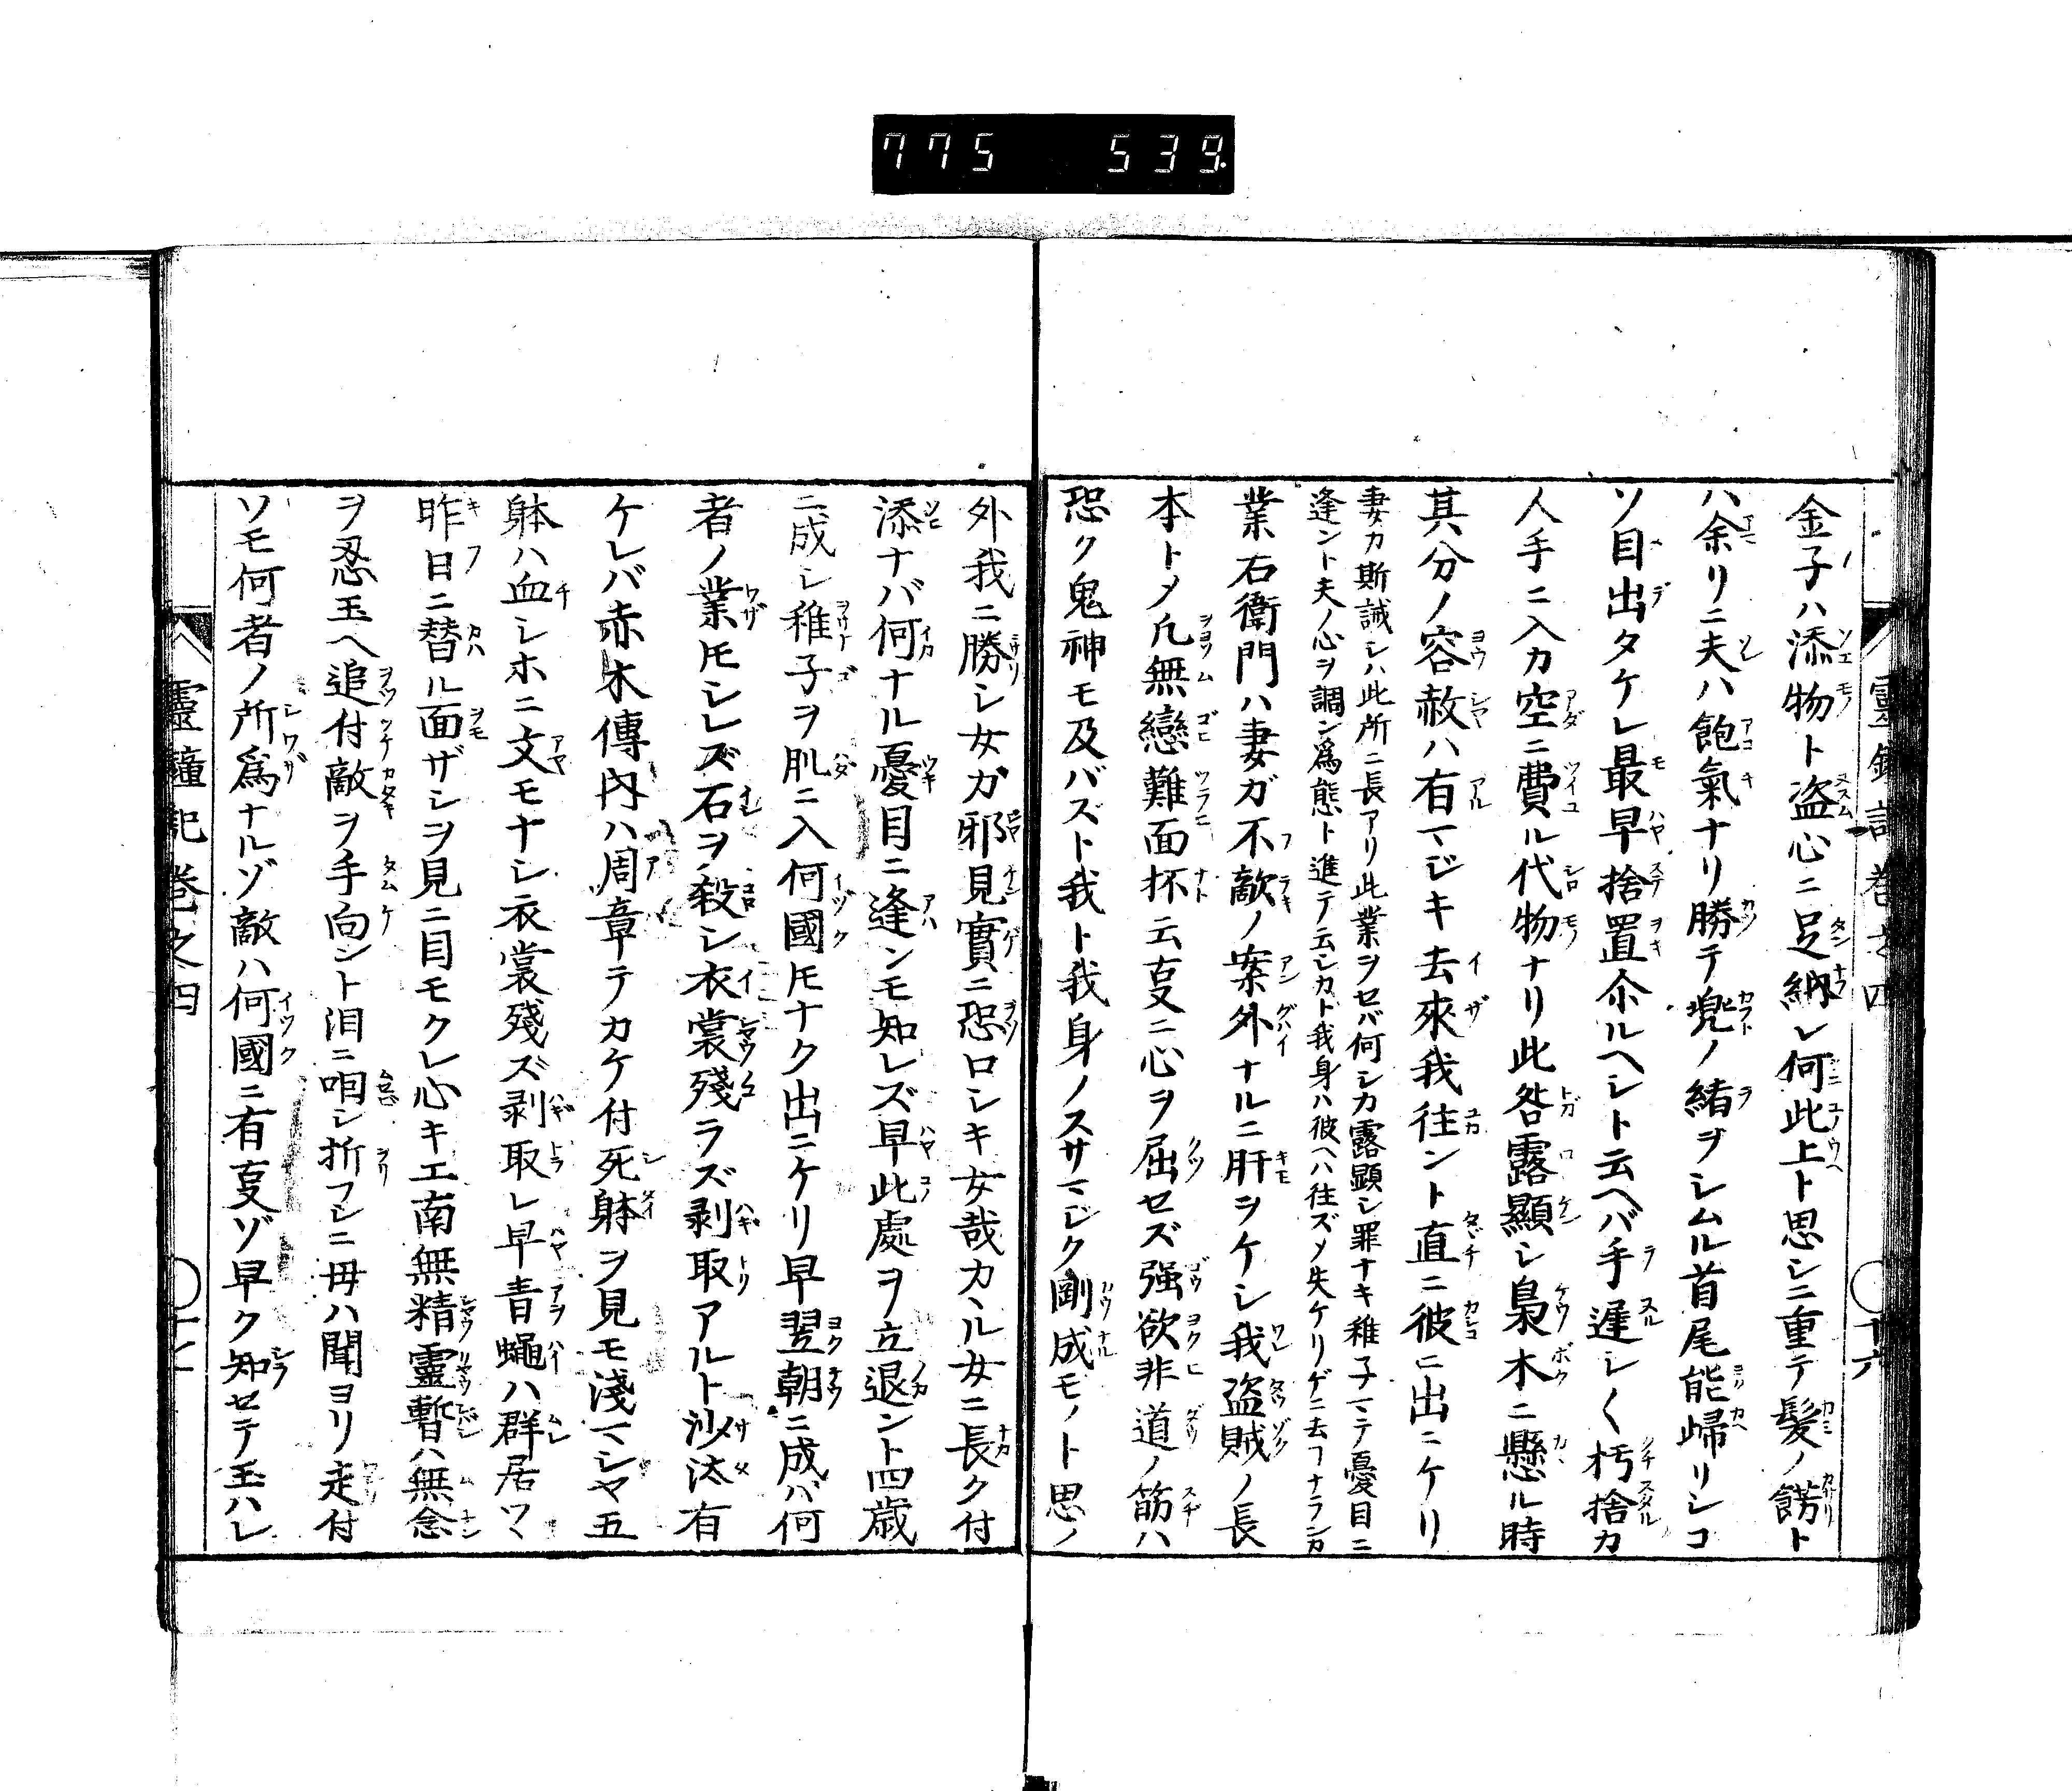 775 539.
靈鐘記卷之四 〇十六
金子ハ添物ト盗心ニ足納レ何此上ト思シニ重テ髮ノ餝ト
ハ余リニ夫ハ飽氣ナリ勝テ兜ノ緒ヲシムル首尾能歸リシコ
ソ目出タケレ最早捨置尒ルヘシト云ヘバ手遲シく朽捨カ
人手ニ入カ空ニ費ル代物ナリ此咎露顯シ梟木ニ懸ル時
其分ノ容赦ハ有マジキ去來我往ント直ニ彼ニ出ニケリ
妻カ斯誡シハ此所ニ長アリ此業ヲセバ何シカ露顯シ罪ナキ稚子マテ憂目ニ
逢ント夫ノ心ヲ調ン爲態ト進テ云シカド我身ハ彼ヘハ往ズメ失ケリゲニ去フナランカ
業右衛門ハ妻ガ不敵ノ案外ナルニ肝ヲケシ我盗賊ノ長
本トメ凡無戀難面抔云叓ニ心ヲ屈セズ强欲非道ノ筋ハ
恐ク鬼神モ及バズト我ト我身ノスサマジク剛成モノト思ノ
外我ニ勝シ女ガ邪見實ニ恐ロシキ女哉カヽル女ニ長ク付
添ナバ何ナル憂目ニ逢ンモ知レズ早此處ヲ立退ント四歳
ニ成シ稚子ヲ肌ニ入何國𪜈ナク出ニケリ早翌朝ニ成バ何
者ノ業𪜈シレズ石ヲ殺シ衣裳殘ラズ剥取アルト沙汰有
ケレバ赤木傳内ハ周章テカケ付死躰ヲ見モ淺マシヤ五
躰ハ血シホニ文モナシ衣裳殘ズ剥取レ早青蠅ハ群居ツヽ
昨日ニ替ル面ザシヲ見ニ目モクレ心キエ南無精靈暫ハ無念
ヲ忍玉ヘ追付敵ヲ手向ント泪ニ咽シ折フシニ母ハ聞ヨリ走付
ソモ何者ノ所爲ナルゾ敵ハ何國ニ有叓ゾ早ク知セテ玉ハレ
靈鐘記卷之四 〇十七